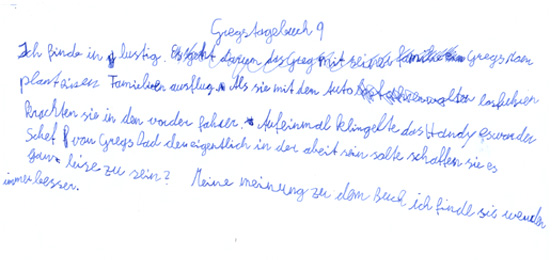 Gregstagebuch 9
Ich finde in lustig. Es geht darum das Greg mit seiner familie Gregs Mam
planten Familien ausflug. Als sie mit den Auto losfuhren
Krachten sie in den vorder fahrer. Aufeinmal klingelte das Handy es war der
Schef von Gregs Dad der eigentlich in der abeit sein solte schaffen sie es
ganz leise zu sein? Meine meinung zu dem Buch ich finde sie werden
immer besser.